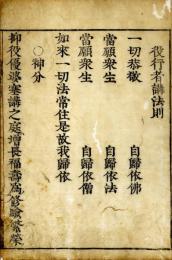 役行者講法則
一切恭敬 自歸依佛
當願衆生 自歸依法
當願衆生 自歸依僧
如來一切法常住是故我歸依
○神分
抑役優婆塞講之庭增長福壽爲修驗繁榮